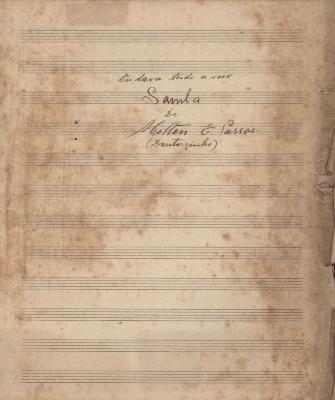 Eu dava tudo a voce
Samba
De
Milton E. Passos
(Doutorzinho)